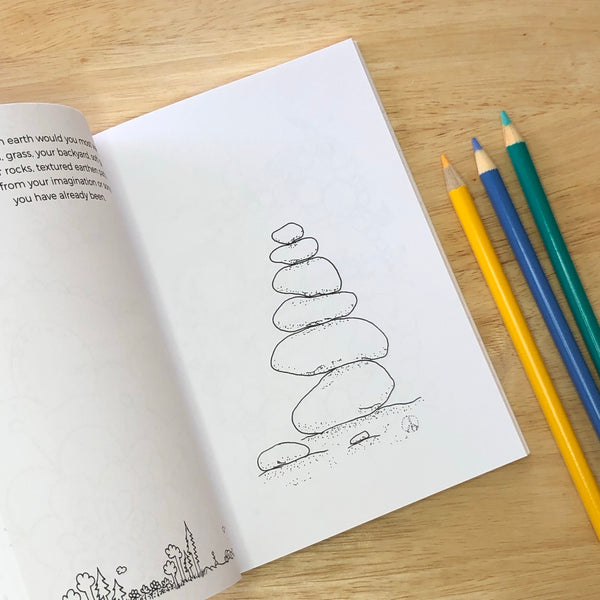 earth would you
grass, your backyard,
rocks, textured earthen
from your imagination or
you have already been.